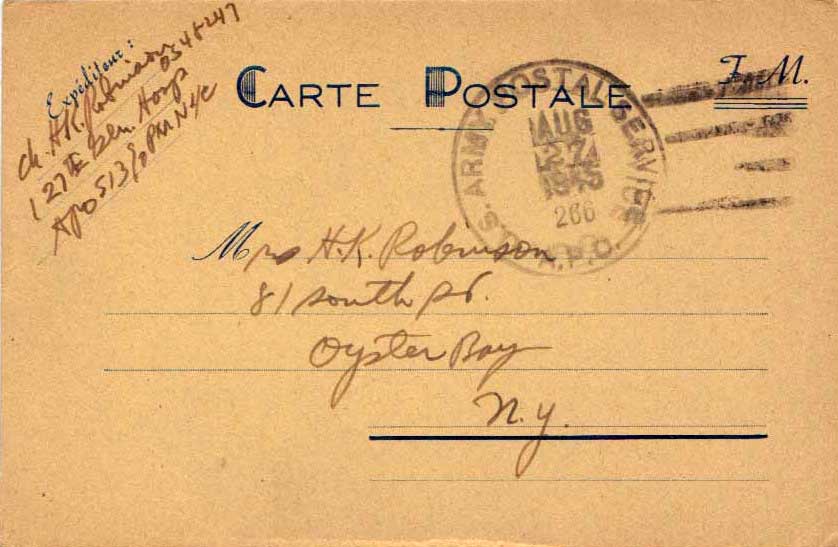 Expéditeur :
Ch. H.K. Robinson
0348247
127th Gen. Hosp
APO 513 % PM NYC
CARTE POSTALE
F. M.
U.S. ARMY POSTAL SERVICE
AUG
27
1945
266
A.P.O.
Mrs H.K. Robinson
81 South St.
Oyster Bay
N.Y.